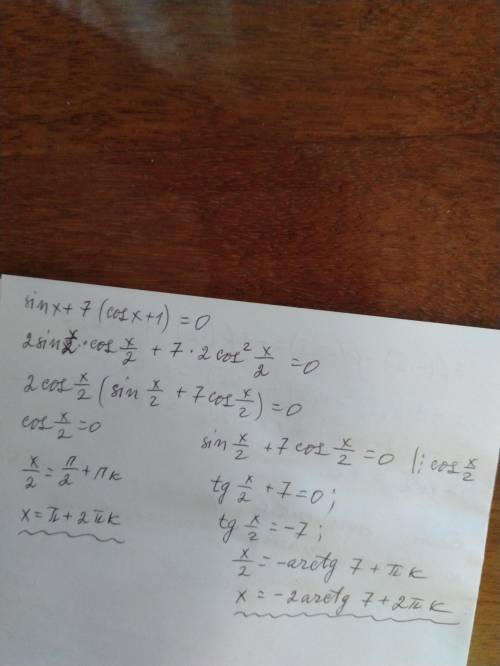 sin x + 7 (cos x + 1) = 0
2 sin x/2 · cos x/2 + 7 · 2 cos² x/2 = 0
2 cos x/2 (sin x/2 + 7 cos x/2) = 0
cos x/2 = 0
x/2 = π/2 + πk
x = π + 2πk
sin x/2 + 7 cos x/2 = 0 |: cos x/2
tg x/2 + 7 = 0;
tg x/2 = -7;
x/2 = -arctg 7 + πk
x = -2 arctg 7 + 2πk